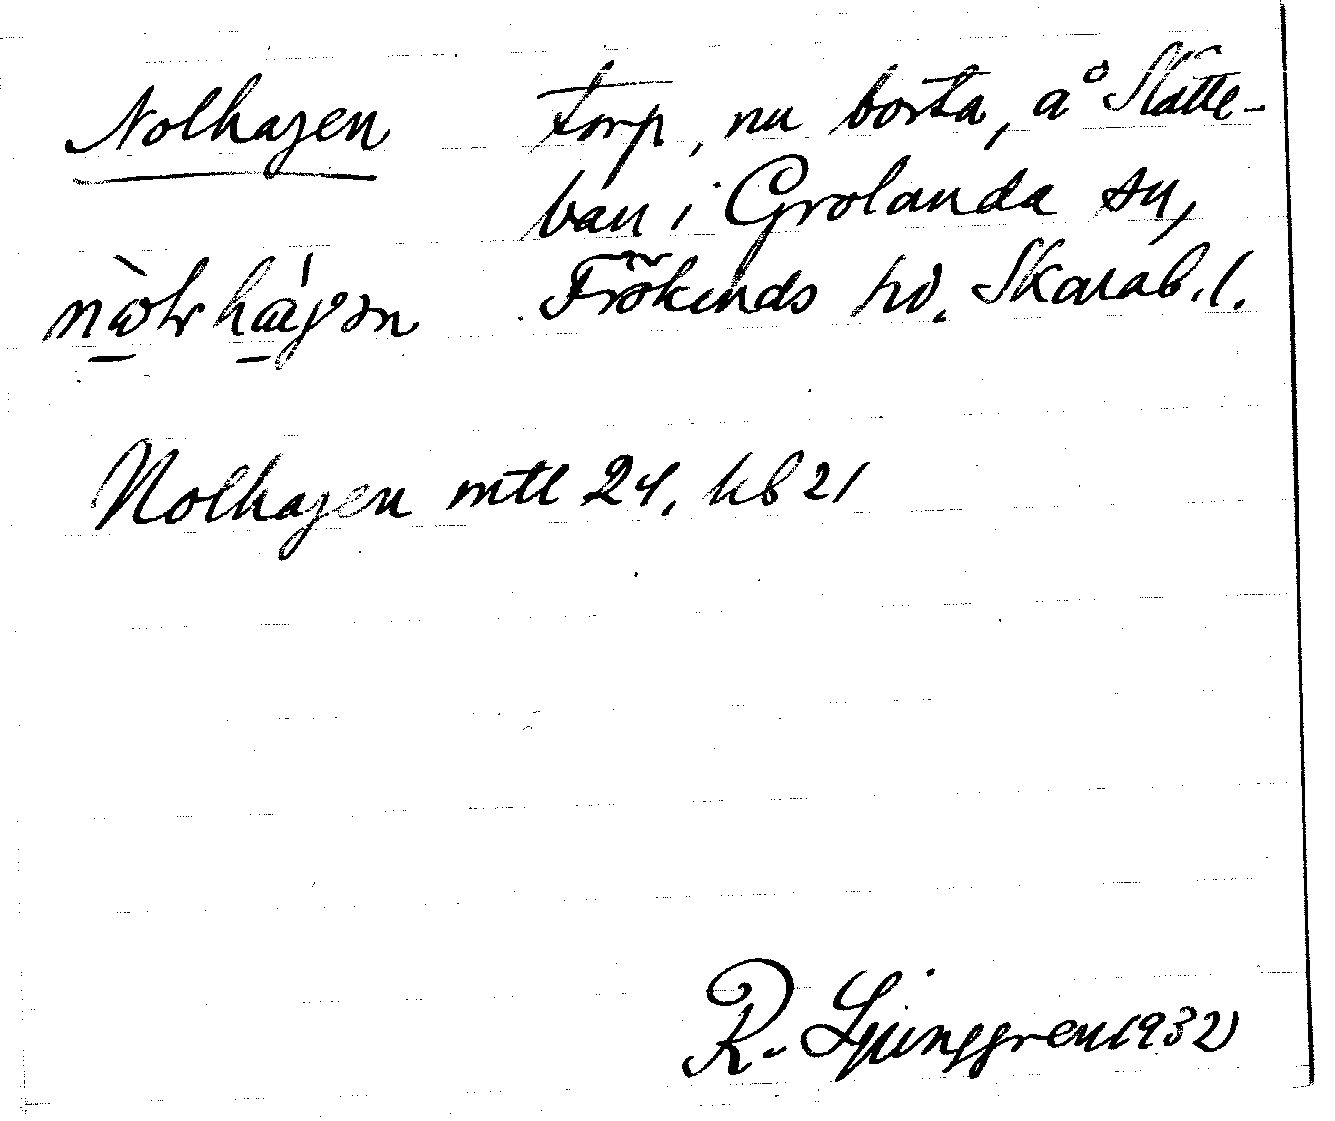 Nolhagen torp, nu borta, å Slätte-
ban i Grolanda sn,
Frökinds hd. Skarab. l.
Nolhagen mtl 24, kb 21
R. Ljunggren 1932